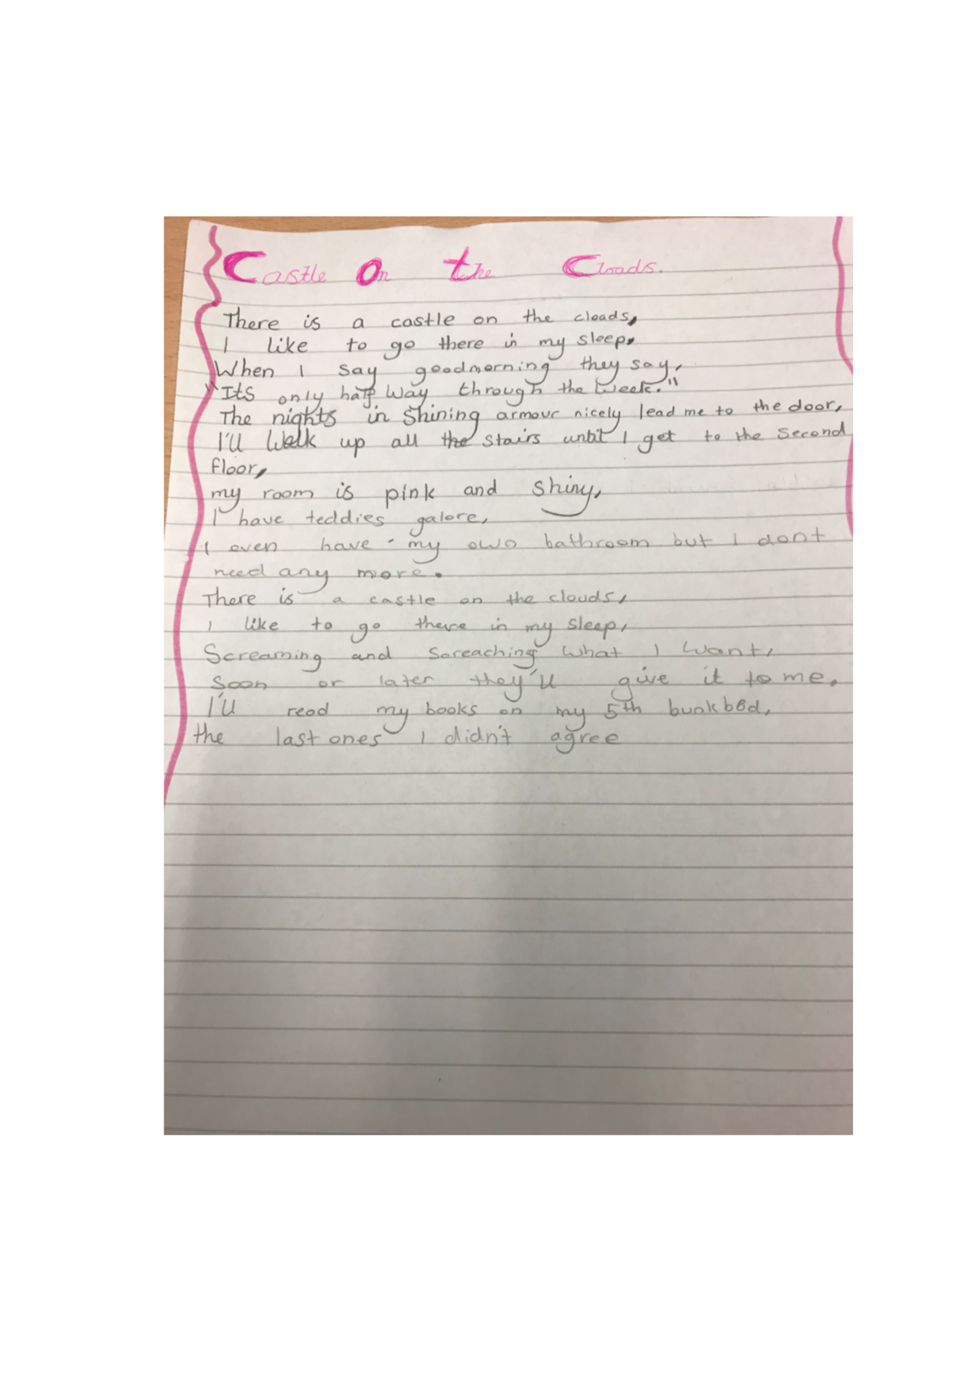 Castle On the Cloads.
There is a castle on the cloads,
I like to go there in my sleep,
When I say goodmorning they say,
"Its only half way through the week."
The nights in Shining armour nicely lead me to the door,
I'll Walk up all the stairs until I get to the Second
floor,
my room is pink and shiny,
I have teddies galore,
I even have my own bathroom but I dont
need any more.
There is a castle on the clouds,
I like to go there in my sleep,
Screaming and Screaching what I want,
Soon or later they'll give it to me,
I'll read my books on my 5th bunkbed,
the last ones I didn't agree